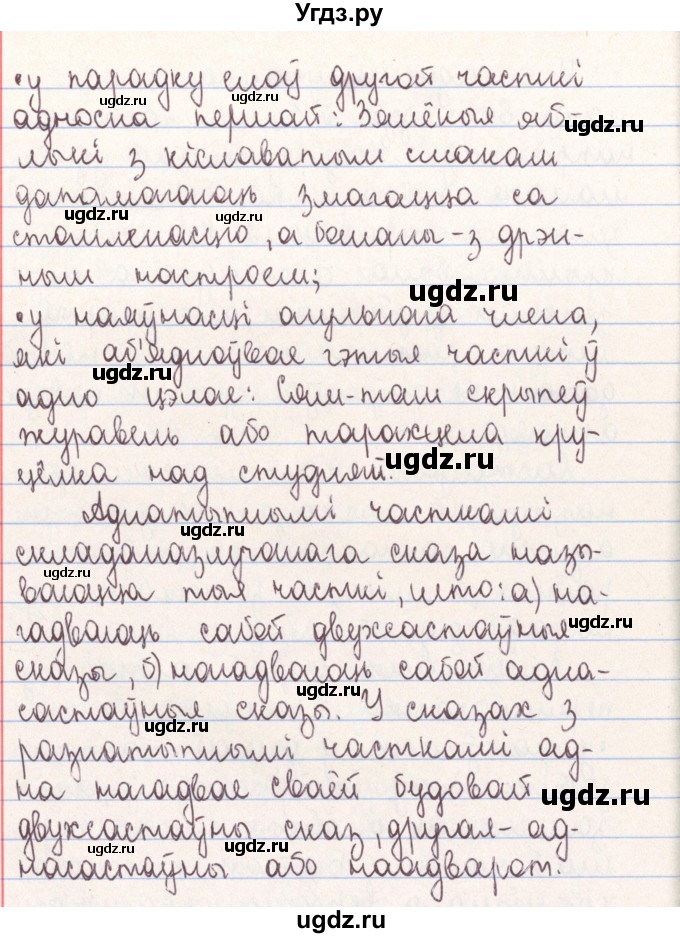 Угдз.ру
•у парадку слоў другой часткі
адносна першай: Зялёныя яб-
лыкі з кіславатым смакам
дапамагаюць змагацца са
стомленасцю, а бананы - з дрэн-
ным настроем;
•у наяўнасці агульнага члена,
які аб'ядноўвае гэтыя часткі ў
адно цэлае: Сям-там скрыпеў
журавель або тарахцела кру-
цёлка над студняй.
Аднатыпнымі часткамі
складаназлучанага сказа назы-
ваюцца тыя часткі, што: а) на-
гадваюць сабой двухсастаўныя
сказы, б) нагадваюць сабой адна-
састаўныя сказы. У сказах з
разнатыпнымі часткамі ад-
на нагадвае сваёй будовай
двухсастаўны сказ, другая - ад-
насастаўны або наадварот.
ugdz.ru